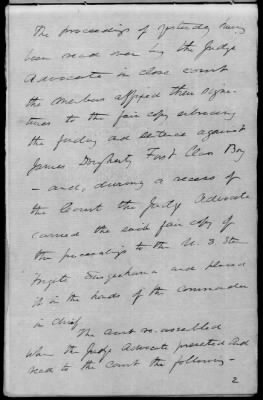 The proceedings of yesterday having
been read over by the Judge
Advocate in close court
the members affixed their signa-
tures to the fair copy embodying
the finding and sentence against
James Dougherty First Class Boy
- and, during a recess of
the Court the Judge Advocate
carried the said fair copy of
the proceedings to the U. S. Stm
Frigate Susquehanna and placed
it in the hands of the commander
in chief.
The court re-assembled
when the Judge Advocate presented and
read to the court the following -
2